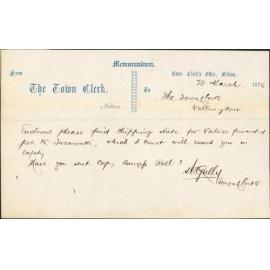 Memorandum.
From
Town Clerk's Office, Nelson,
20 March 187
The Town Clerk,
To
The Town Clerk
Nelson.
Wellington
Enclosed please find shipping note for Valves forwarded
per which I trust will reach you in
safety.
Have you sent Copy Roll?
Gully
Town Clerk